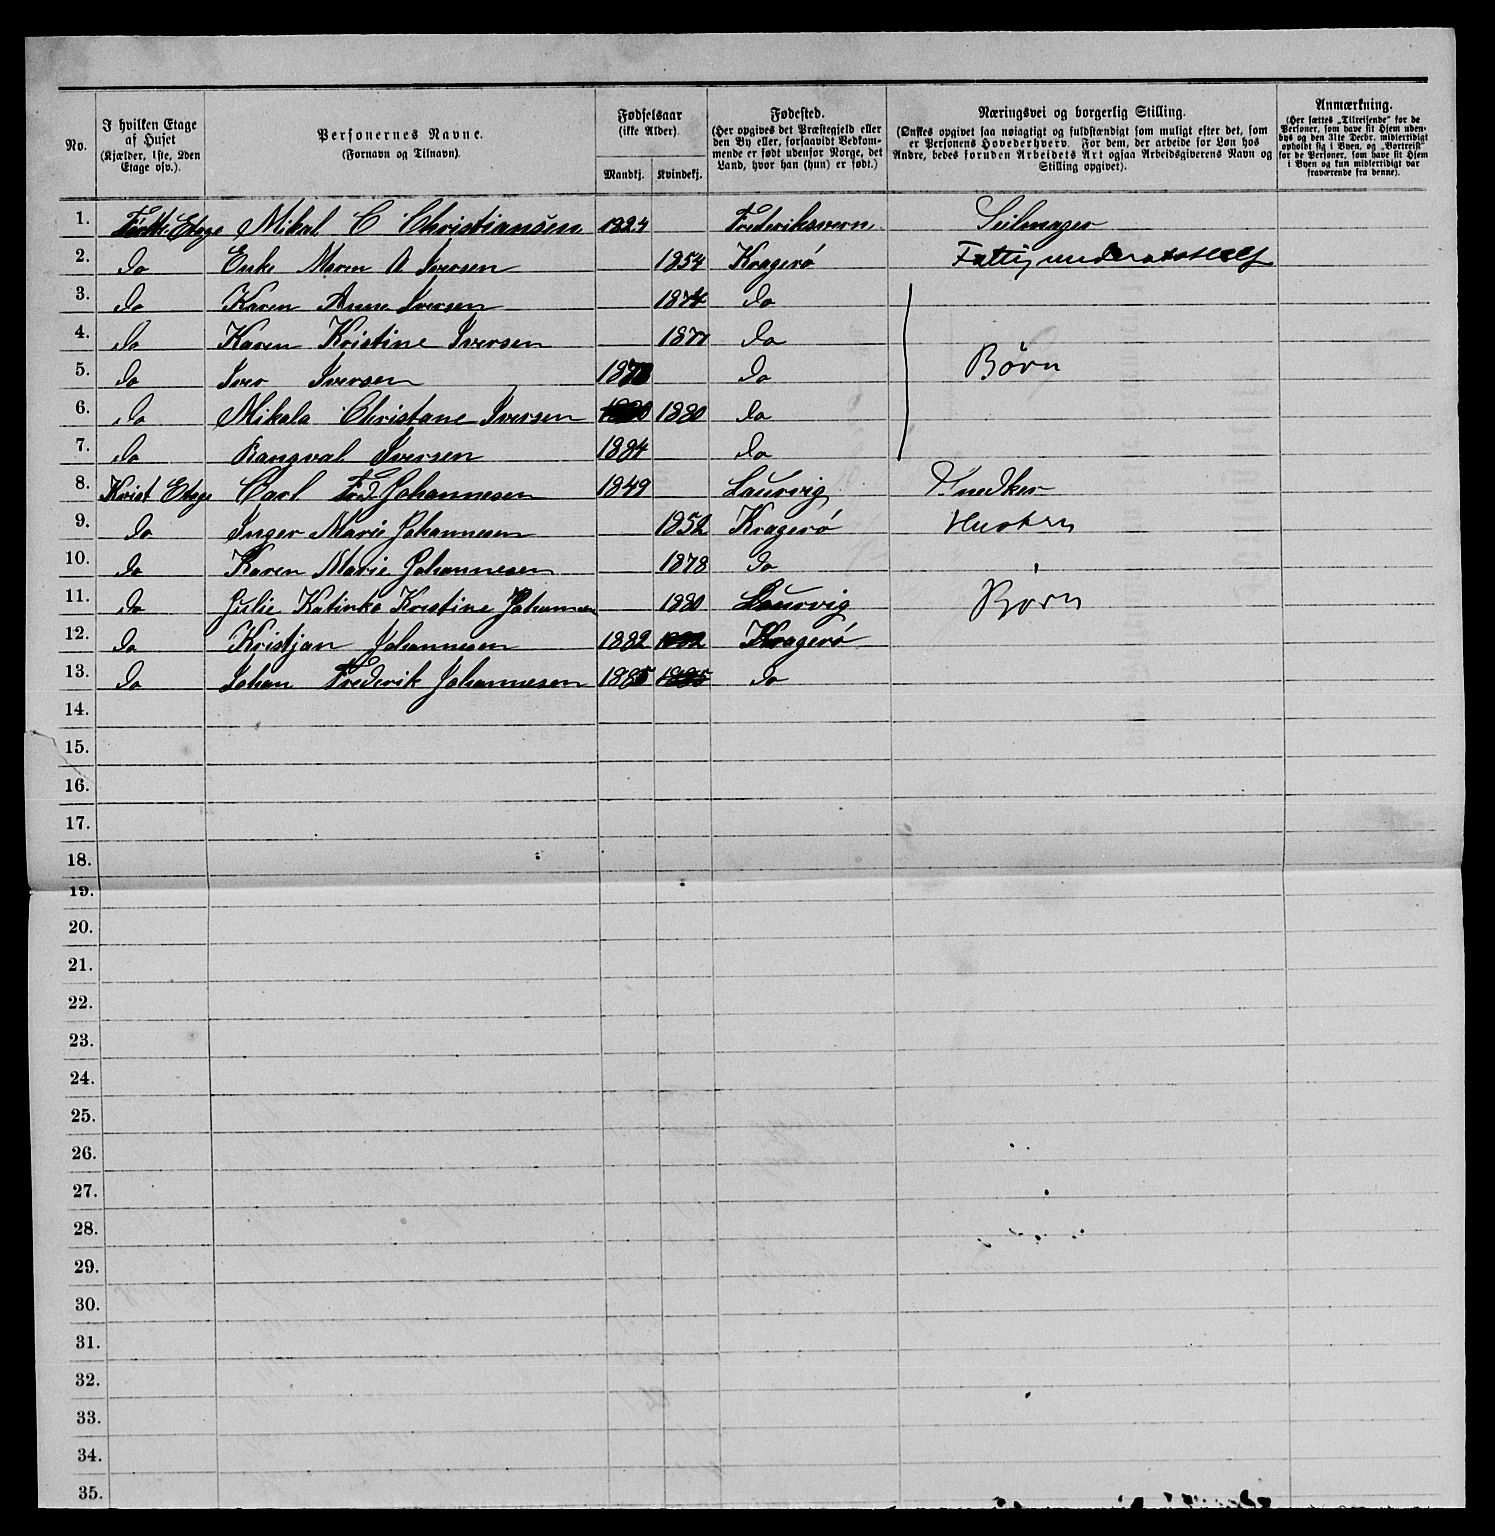 No.
I hvilken Etage af Huset (Kjælder, 1ste, 2den Etage osv.).
Personernes Navne. (Fornavn og Tilnavn).
Fødselsaar (ikke Alder). Mandkj. Kvindekj.
Fødested. (Her opgives det Præstegjeld eller den By eller, forsaavidt Vedkommende er født udenfor Norge, det Land, hvor han (hun) er født.)
Næringsvei og borgerlig Stilling. (Ønskes opgivet saa nøiagtigt og fuldstændigt som muligt efter det, som er Personens Hovederhverv. For dem, der arbeide for Løn hos Andre, bedes foruden Arbeidets Art ogsaa Arbeidsgiverens Navn og Stilling opgivet).
Anmærkning. (Her sættes „Tilreisende" for de Personer, som have sit Hjem udenbys og den 31te Decbr. midlertidigt opholdt sig i Byen, og „Bortreist" for de Personer, som have sit Hjem i Byen og kun midlertidigt var fraværende fra denne).
1. Første Etage Mikal C Christiansen 1824 Frederiksvern Seilmager
2. do Enke Maren A Iversen 1854 Kragerø
3. do Karen Anne Iversen 1874 do
4. do Karen Kristine Iversen 1877 do
5. do Iver Iversen do Børn
6. do Mikala Christane Iversen 1880 do
7. do Rangval Iversen 1884 do
8. Kvist Etage Carl Fred Johannesen 1849 Laurvig Snedker
9. do Inger Marie Johannesen 1852 Kragerø Hustru
10. do Karen Marie Johannesen 1878 do
11. do Julie Katinka Kristine Johannesen 1880 Laurvig Børn
12. do Kristjan Johannesen 1882 1882 Kragerø
13. do Johan Frederik Johannesen 1885 1885 do
14.
15.
16.
17.
18.
19.
20.
21.
22.
23.
24.
25.
26.
27.
28.
29.
30.
31.
32.
33.
34.
35.